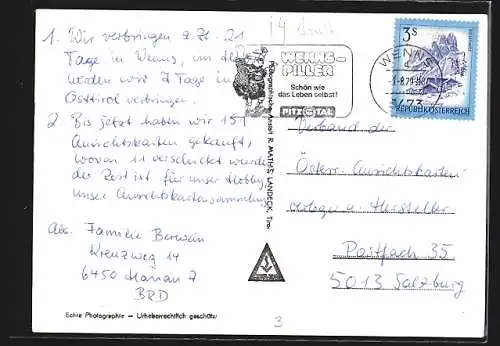 1. Wir verbringen z. Zt. 21
Tage in Wenns, an die
werden wir 7 Tage in
Osttirol verbringen.
2 Bis jetzt haben wir 151
Ansichtskarten gekauft,
wovon 11 verschickt wurden
der Rest ist für unser Hobby,
unser Ansichtskartensammlung
Abs. Familie
Kreuzweg 14
6450 Hanau 7
BRD
Echte Photographie – Urheberrechtlich geschützt
R. MATHIS, LANDECK, Tirol
WENNS-
PILLER
Schön wie
das Leben selbst!
PITZTAL
WENNS
6473
3 S
REPUBLIK ÖSTERREICH
Verband der
Österr. Ansichtskarten-
verleger u. Hersteller
Postfach 35
5013 Salzburg
3